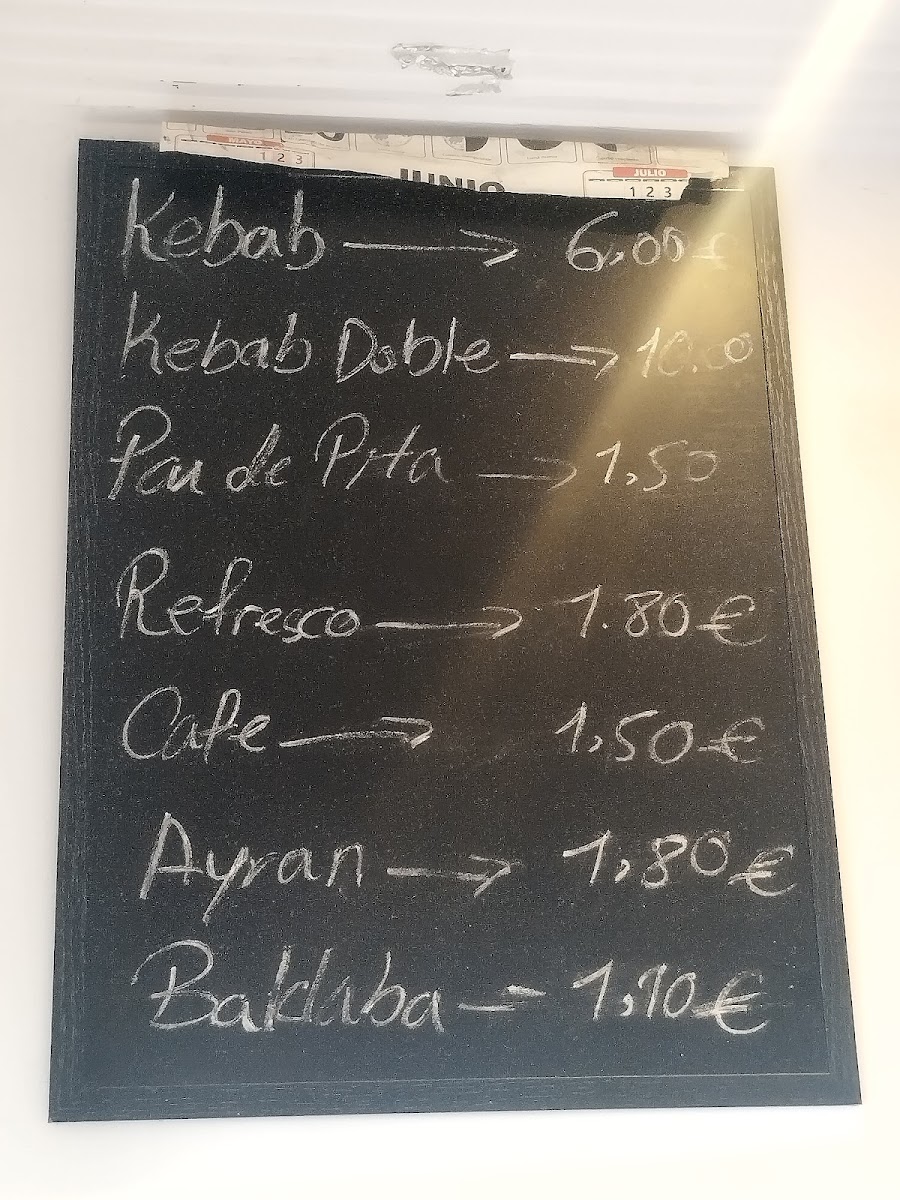 MAYO
1 2 3
JUNIO
JULIO
1 2 3
Kebab → 6,00€
Kebab Doble → 10.00
Pan de Pita → 1,50
Refresco → 1.80€
Cafe → 1,50€
Ayran → 1,80€
Baklaba — 1,10€